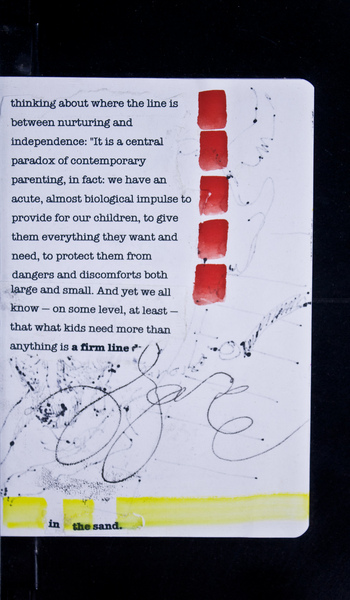 thinking about where the line is
between nurturing and
independence: "It is a central
paradox of contemporary
parenting, in fact: we have an
acute, almost biological impulse to
provide for our children, to give
them everything they want and
need, to protect them from
dangers and discomforts both
large and small. And yet we all
know — on some level, at least —
that what kids need more than
anything is a firm line
in the sand.